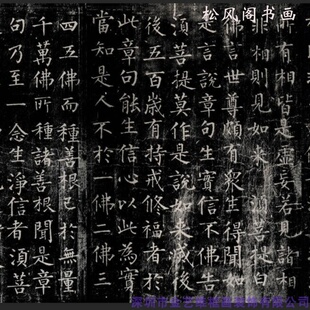 松风阁书画
所有相皆是虛妄若見諸相
非相則見如來須菩提白
佛言世尊頗有眾生得聞如
是言說章句生實信不佛告
須菩提莫作是說如來滅
後五百歲有持戒修福者於
此章句能生信心以此為實
當知是人不於一佛二佛三
四五佛而種善根已於無量
千萬佛所種諸善根聞是章
句乃至一念生淨信者須菩